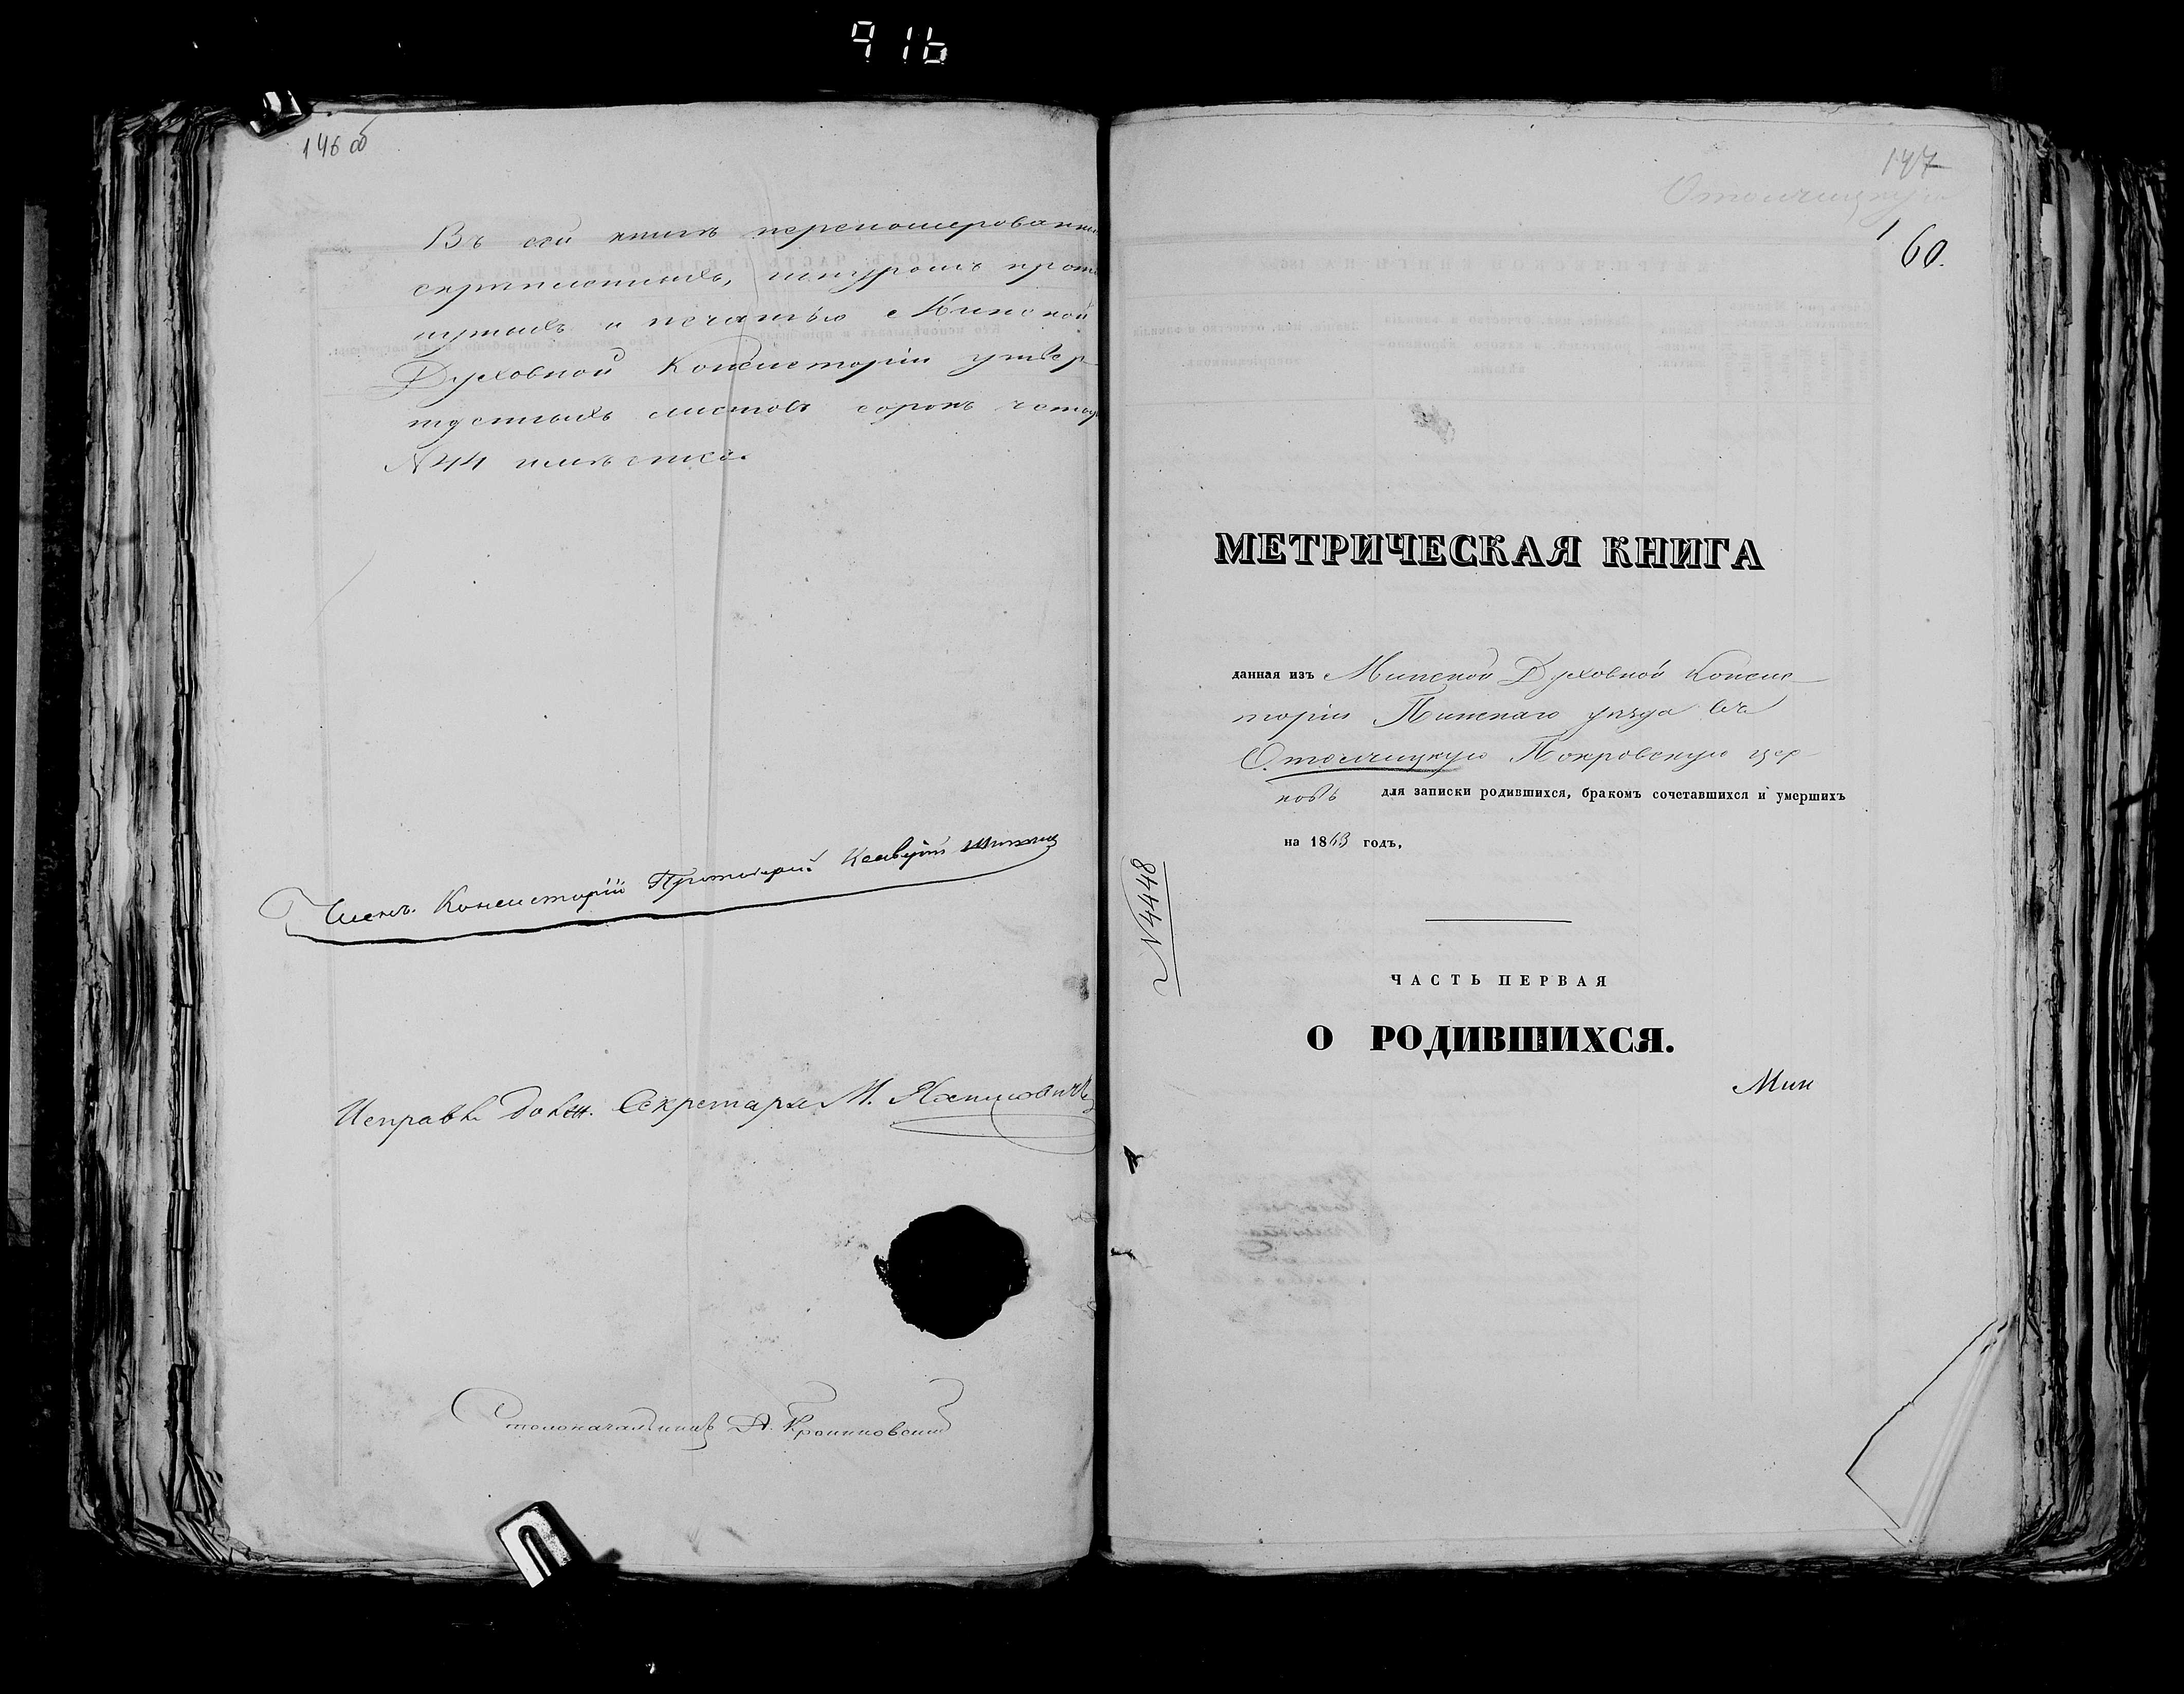 916
146 об
Въ сей книгѣ переномерованны
скрѣпленныхъ, шнуромъ прош
нутыхъ и печатью Минской
Духовной Консисторіи утвер
жденныхъ листовъ сорокъ четыр
№ 44 имѣется.
Членъ Консисторіи Протоіерей
Исправл. долж. Секретаря М.
Столоначальникъ А.
147
Отолчицкую
1
60.
МЕТРИЧЕСКАЯ КНИГА
данная изъ Минской Духовной Консис
торіи Пинскаго уѣзда въ
Отолчицкую Покровскую цер
ковь для записки родившихся, бракомъ сочетавшихся и умершихъ
на 1863 годъ,
№ 4448
ЧАСТЬ ПЕРВАЯ
О РОДИВШИХСЯ.
Мин